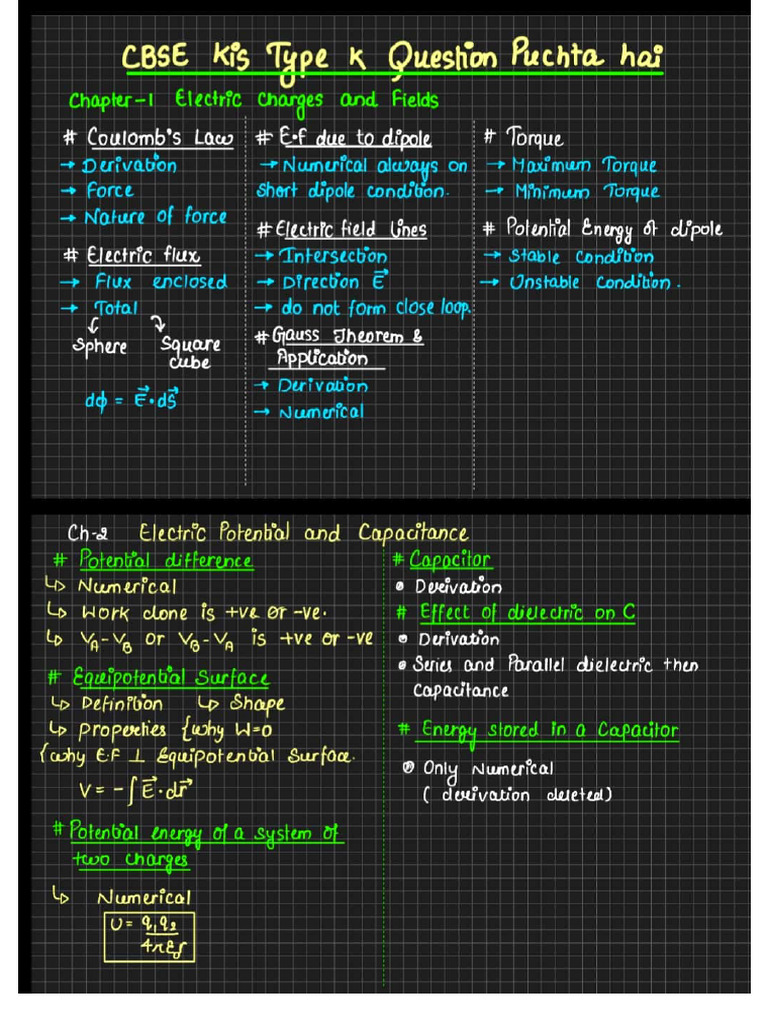 CBSE Kis Type k Question Puchta hai
Chapter-1 Electric Charges and Fields
# Coulomb's Law
→ Derivation
→ Force
→ Nature of force
# Electric flux
→ Flux enclosed
→ Total
Sphere Square
cube
dϕ = E⃗·dS⃗
# E.f due to dipole
→ Numerical always on
short dipole condition.
# Electric field lines
→ Intersection
→ Direction E⃗
→ do not form close loop.
# Gauss Theorem &
Application
→ Derivation
→ Numerical
# Torque
→ Maximum Torque
→ Minimum Torque
# Potential Energy of dipole
→ Stable Condition
→ Unstable Condition.
Ch-2 Electric Potential and Capacitance
# Potential difference
↳ Numerical
↳ Work done is +ve or -ve.
↳ V_A-V_B or V_B-V_A is +ve or -ve
# Equipotential Surface
↳ Definition ↳ Shape
↳ properties {why W=0
{why E.F ⊥ Equipotential Surface.
V = -∫E⃗·dr⃗
# Potential energy of a system of
two charges
↳ Numerical
U = q₁q₂/4πε₀r
# Capacitor
• Derivation
# Effect of dielectric on C
• Derivation
• Series and Parallel dielectric then
Capacitance
# Energy stored in a Capacitor
• Only Numerical
( derivation deleted)